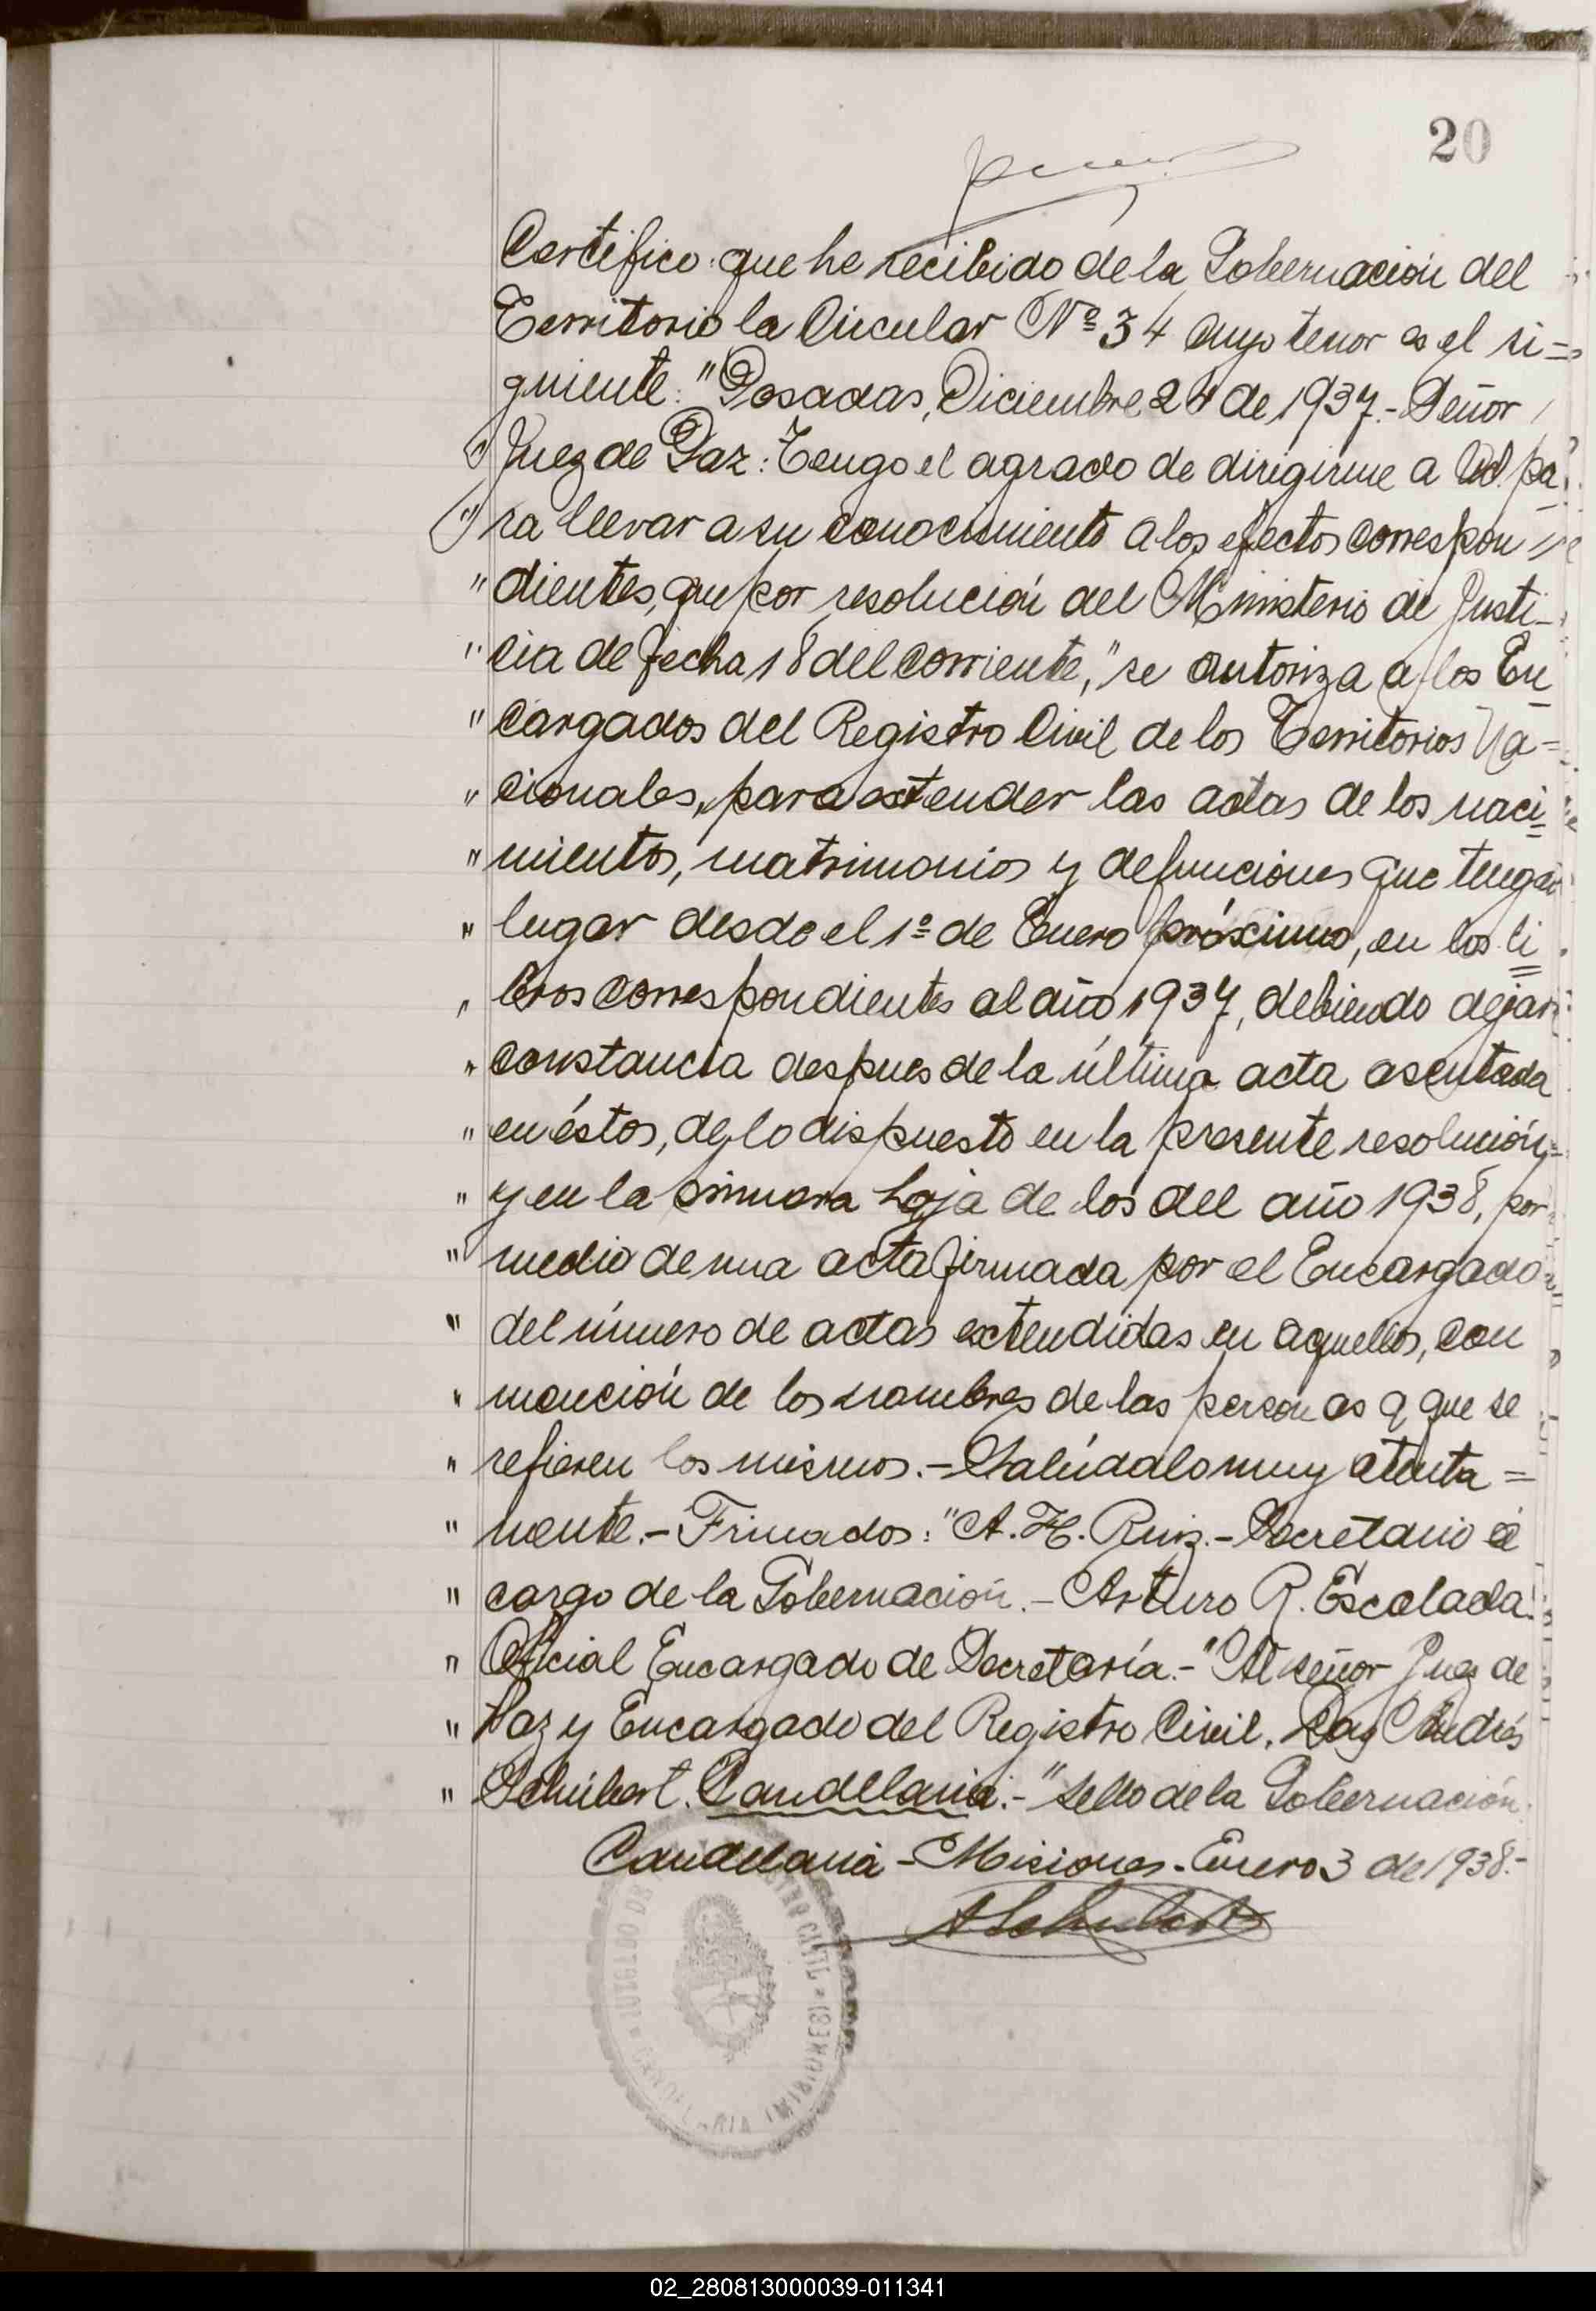 20
Certifico: que he recibido de la Gobernación del
Territorio la Circular Nº 34 cuyo tenor es el si=
guiente: "Posadas, Diciembre 24 de 1937.- Señor
" Juez de Paz: Tengo el agrado de dirigirme a Ud. pa
" ra llevar a su conocimiento a los efectos correspon
" dientes, que por resolución del Ministerio de Justi-
" cia de fecha 18 del corriente, "se autoriza a los En
" cargados del Registro Civil de los Territorios Na=
" cionales, para extender las actas de los naci=
" mientos, matrimonios y defunciones que tengan
" lugar desde el 1º de Enero próximo, en los li=
" bros correspondientes al año 1937, debiendo dejar
" constancia despues de la última acta asentada
" en éstos, de lo dispuesto en la presente resolución,
" y en la primera hoja de los del año 1938, por
" medio de una acta firmada por el Encargado
" del número de actas extendidas en aquellos, con
" mención de los nombres de las personas a que se
" refieren los mismos.- Salúdalo muy atenta=
" mente.- Frimados: "A. H. Ruiz.- Secretario a
" cargo de la Gobernación.- Arturo R. Escalada.
" Oficial Encargado de Secretaría.- "Al señor Juez de
" Paz y Encargado del Registro Civil, Don Andrés
" Schubert. Candelaria.-" Sello de la Gobernación.
Candelaria - Misiones - Enero 3 de 1938.-
ASchubert
REGISTRO CIVIL * (MISIONES) CANDELARIA *
02_280813000039-011341